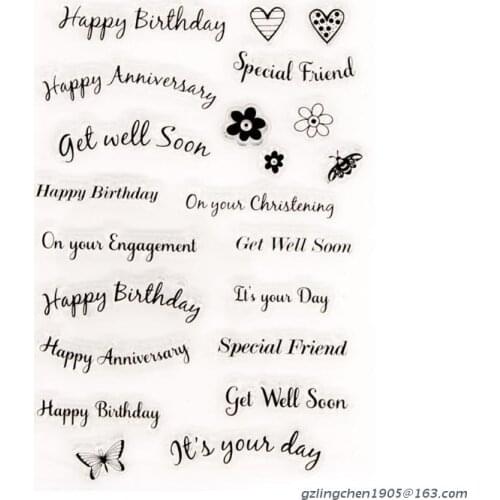 Happy Birthday
Special Friend
Happy Anniversary
Get well Soon
Happy Birthday
On your Christening
On your Engagement
Get Well Soon
Happy Birthday
It's your Day
Happy Anniversary
Special Friend
Get Well Soon
Happy Birthday
It's your day
gzlingchen1905@163.com